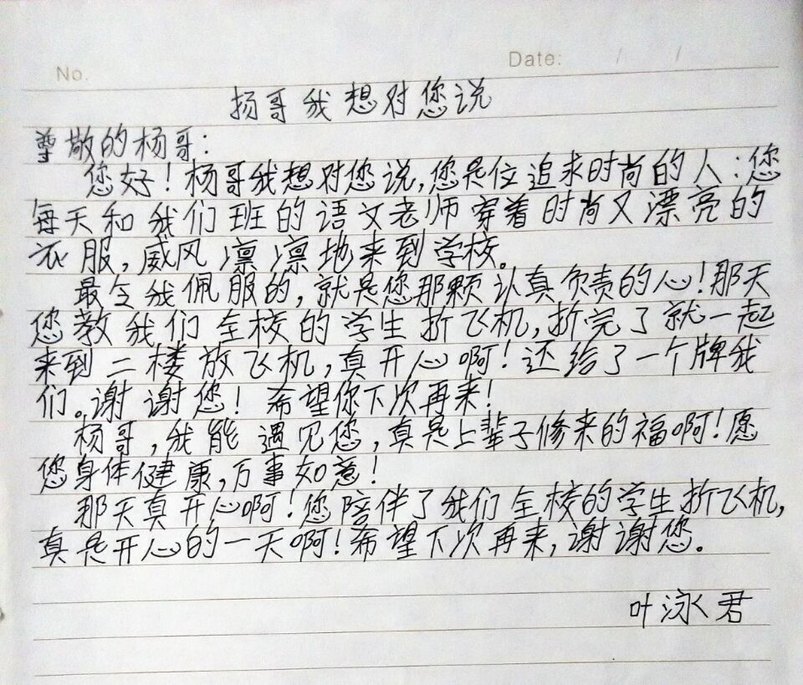 No.
Date: / /
杨哥我想对您说
尊敬的杨哥:
您好!杨哥我想对您说,您是位追求时尚的人:您
每天和我们班的语文老师穿着时尚又漂亮的
衣服,威风凛凛地来到学校。
最令我佩服的,就是您那颗认真负责的心!那天
您教我们全校的学生折飞机,折完了就一起
来到二楼放飞机,真开心啊!还给了一个牌我
们。谢谢您!希望你下次再来!
杨哥,我能遇见您,真是上辈子修来的福啊!愿
您身体健康,万事如意!
那天真开心啊!您陪伴了我们全校的学生折飞机,
真是开心的一天啊!希望下次再来,谢谢您。
叶泳君